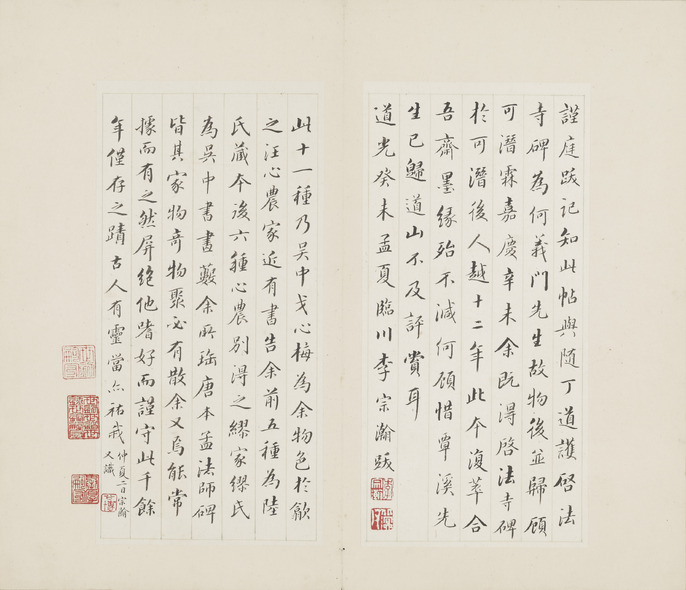 謹庭跋記知此帖與隨丁道護啓法
寺碑為何義門先生故物後並歸顧
可潛霖嘉慶辛未余既得啓法寺碑
於可潛後人越十二年此本復萃合
吾齋墨緣殆不減何顧惜覃溪先
生已歸道山不及評賞耳
道光癸未孟夏臨川李宗瀚跋
此十一種乃吳中戈心梅為余物色於歙
之汪心農家近有書告余前五種為陸
氏藏本後六種心農別得之繆家繆氏
為吳中書畫藪余所臨唐本孟法師碑
皆其家物奇物聚必有散余又焉能常
據而有之然屏絕他嗜好而謹守此千餘
年僅存之蹟古人有靈當亦祐哉
仲夏二日宗瀚
又識